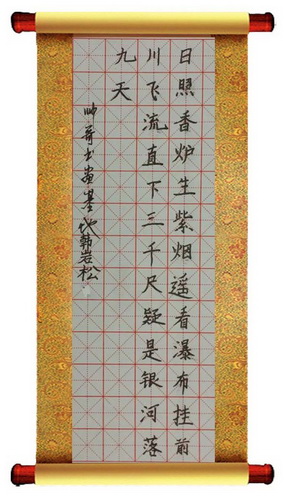 日照香炉生紫烟遥看瀑布挂前
川飞流直下三千尺疑是银河落
九天
韩岩松